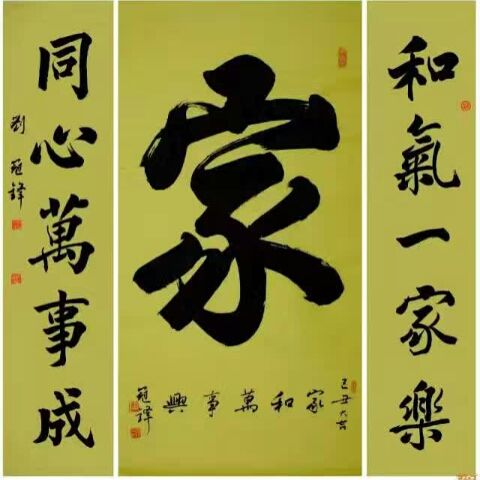 和氣一家樂
家
己丑大吉
家和萬事興
冠鐸
同心萬事成
劉冠鐸